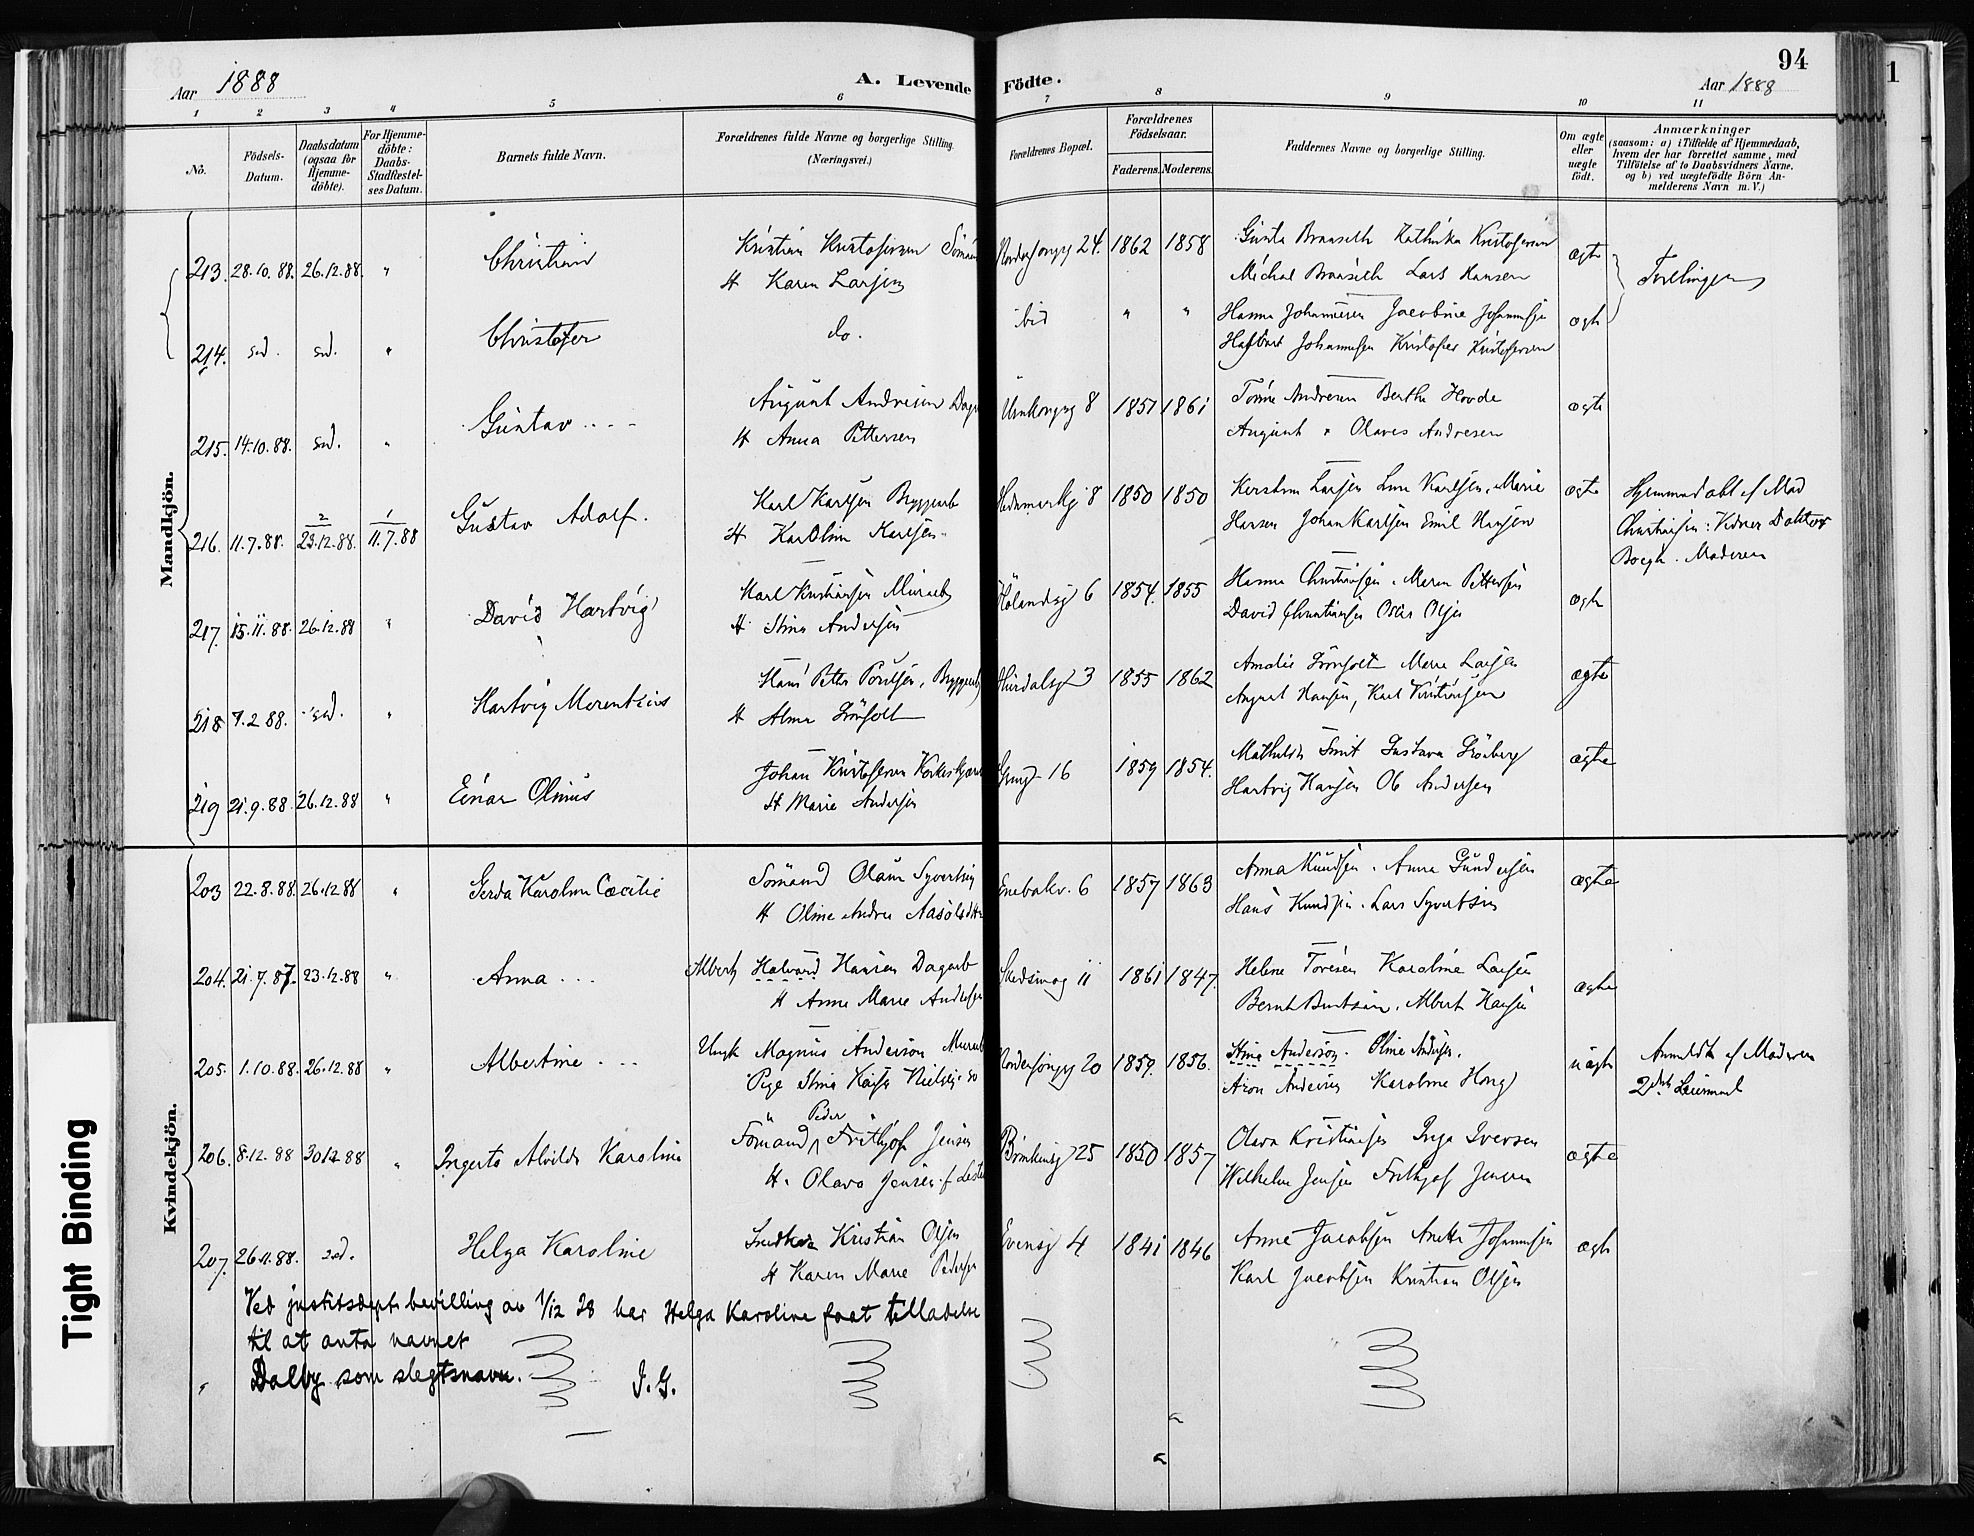 94
1
Aar 1888
A. Levende Födte.
Aar 1888
1 2 3 4 5 6 7 8 9 10 11
No.
Födsels-
Datum.
Daabsdatum
(ogsaa for
Hjemme-
döbte).
For Hjemme-
döbte:
Daabs-
Stadfæstel-
ses Datum.
Barnets fulde Navn.
Forældrenes fulde Navne og borgerlige Stilling.
(Næringsvei.)
Forældrenes Bopæl.
Forældrenes
Födselsaar.
Faderens. Moderens.
Faddernes Navne og borgerlige Stilling.
Om ægte
eller
uægte
födt.
Anmærkninger
(saasom: a) i Tilfælde af Hjemmedaab,
hvem der har forrettet samme, med
Tilföielse af to Daabsvidners Navne,
og b) ved uægtefödte Börn An-
melderens Navn m. V.)
Mandkjön.
213. 28.10.88. 26.12.88. " Christian
Kristian Kristofersen
H Karen Larsen
24. 1862 1858
Gusta Braaseth Kathinka Kristofersen
Michal Braaseth Lars Hansen
ægte
Tvillinger
214. sd. sd. " Christofer do. ibid " "
Hanna Johannesen Jacobine Johannesen
Johannesen Kristofer Kristofersen
ægte
215. 14.10.88. sd. " Gustav
August Andresen
H Anna Pettersen
8 1857 1861
Andresen Berthe Hovde
August " Olaves Andresen
ægte
216. 11.7.88. 2 23.12.88. 1 11.7.88 Gustav Adolf.
Karl Karlsen Bryggearb
H Karoline Karlsen
Hedemarksg 8 1850 1850
Larsen Karlsen, Marie
Hansen Johan Karlsen Emil Hansen
ægte
Hjemmedøbt af Mad
Christiansen: Vidner Doktor
Boegh. Moderen
217. 15.11.88. 26.12.88 " David Hartvig
Karl Kristiansen Murarb
H. Stina Andersen
Hölandsg 6 1854. 1855
Hanna Christiansen. Maren Pettersen
David Christiansen Oskar Olsen
ægte
218 7.2.88. sd. " Hartvig Morentius
Hans Petter Poulsen, Bryggearb
H Alma
Hurdalsgt 3 1855 1862
Amalie Marie Larsen
August Hansen, Karl Kristiansen
ægte
219 21.9.88. 26.12.88 " Einar Olnius
Johan Kristofersen
H Marie Andersen
16 1859 1854.
Mathilda Smit Gustava
Hartvig Hansen Ole Andersen
ægte
Kvindekjön.
203 22.8.88. 26.12.88 " Gerda Karoline Cæcilie
Sömand Olaus Syvertsen
H Oline Andrea
Enebakv. 6 1857 1863
Anna Knudsen. Anna Gundersen
Hans Knudsen. Lars Syvertsen
ægte
204. 21.7.87. 23.12.88 " Anna
Albert Halvard Hansen Dagarb
H Anne Marie Andersen
Skedsmog 11 1861 1847.
Helene Toresen Karoline Larsen
Bernt Berntsen, Albert Hansen
ægte
205. 1.10.88. 26.12.88 " Albertine
Ungk Magnus Anderson Murarb
Pige Stina Kajsa
20 1859. 1856.
Stina Anderson. Oline Andersen.
Aron Andersen Karoline Hong
uægte
Anmeldt af Moderen
2det Leiermaal
206. 8.12.88 30.12.88 " Ingerta Alvilde Karoline
Peder
Sömand Frithjof Jensen
H. Olava Jensen f.
25 1850 1857
Olava Kristiansen Inga Iversen
Wilhelm Jensen Frithjof Jensen
ægte
207. 26.11.88. sd. Helga Karoline
Snedker Kristian Olsen
H Karen Marie Pedersen
Evensg 4 1841 1846
Anne Jacobsen Anette Johannesen
Karl Jacobsen Kristian Olsen
ægte
Ved justitsdept. bevilling av 1/12 28 har Helga Karoline faat tilladelse
til at anta navnet
Dalby som slegtsnavn. J. G.
Tight Binding